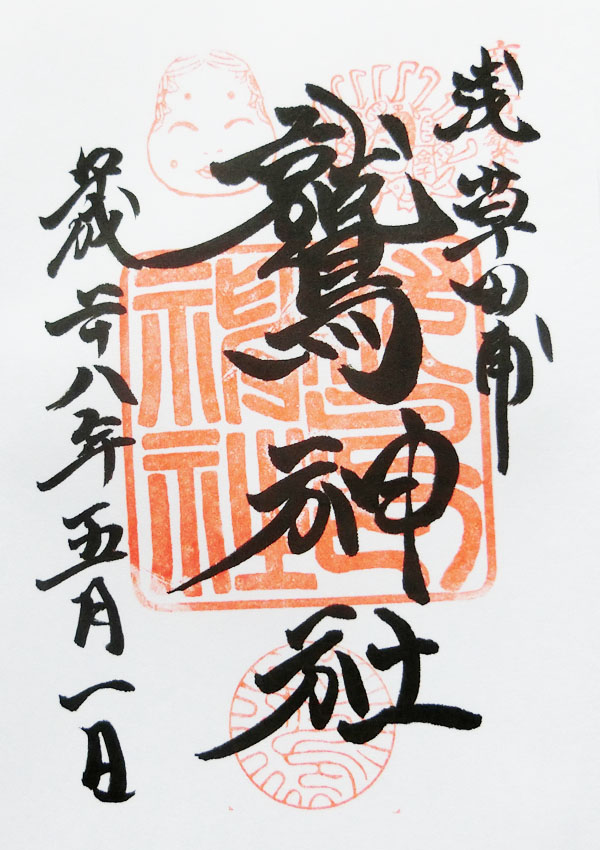 浅草田甫
鷲神社
平成廿八年五月一日
鷲神社